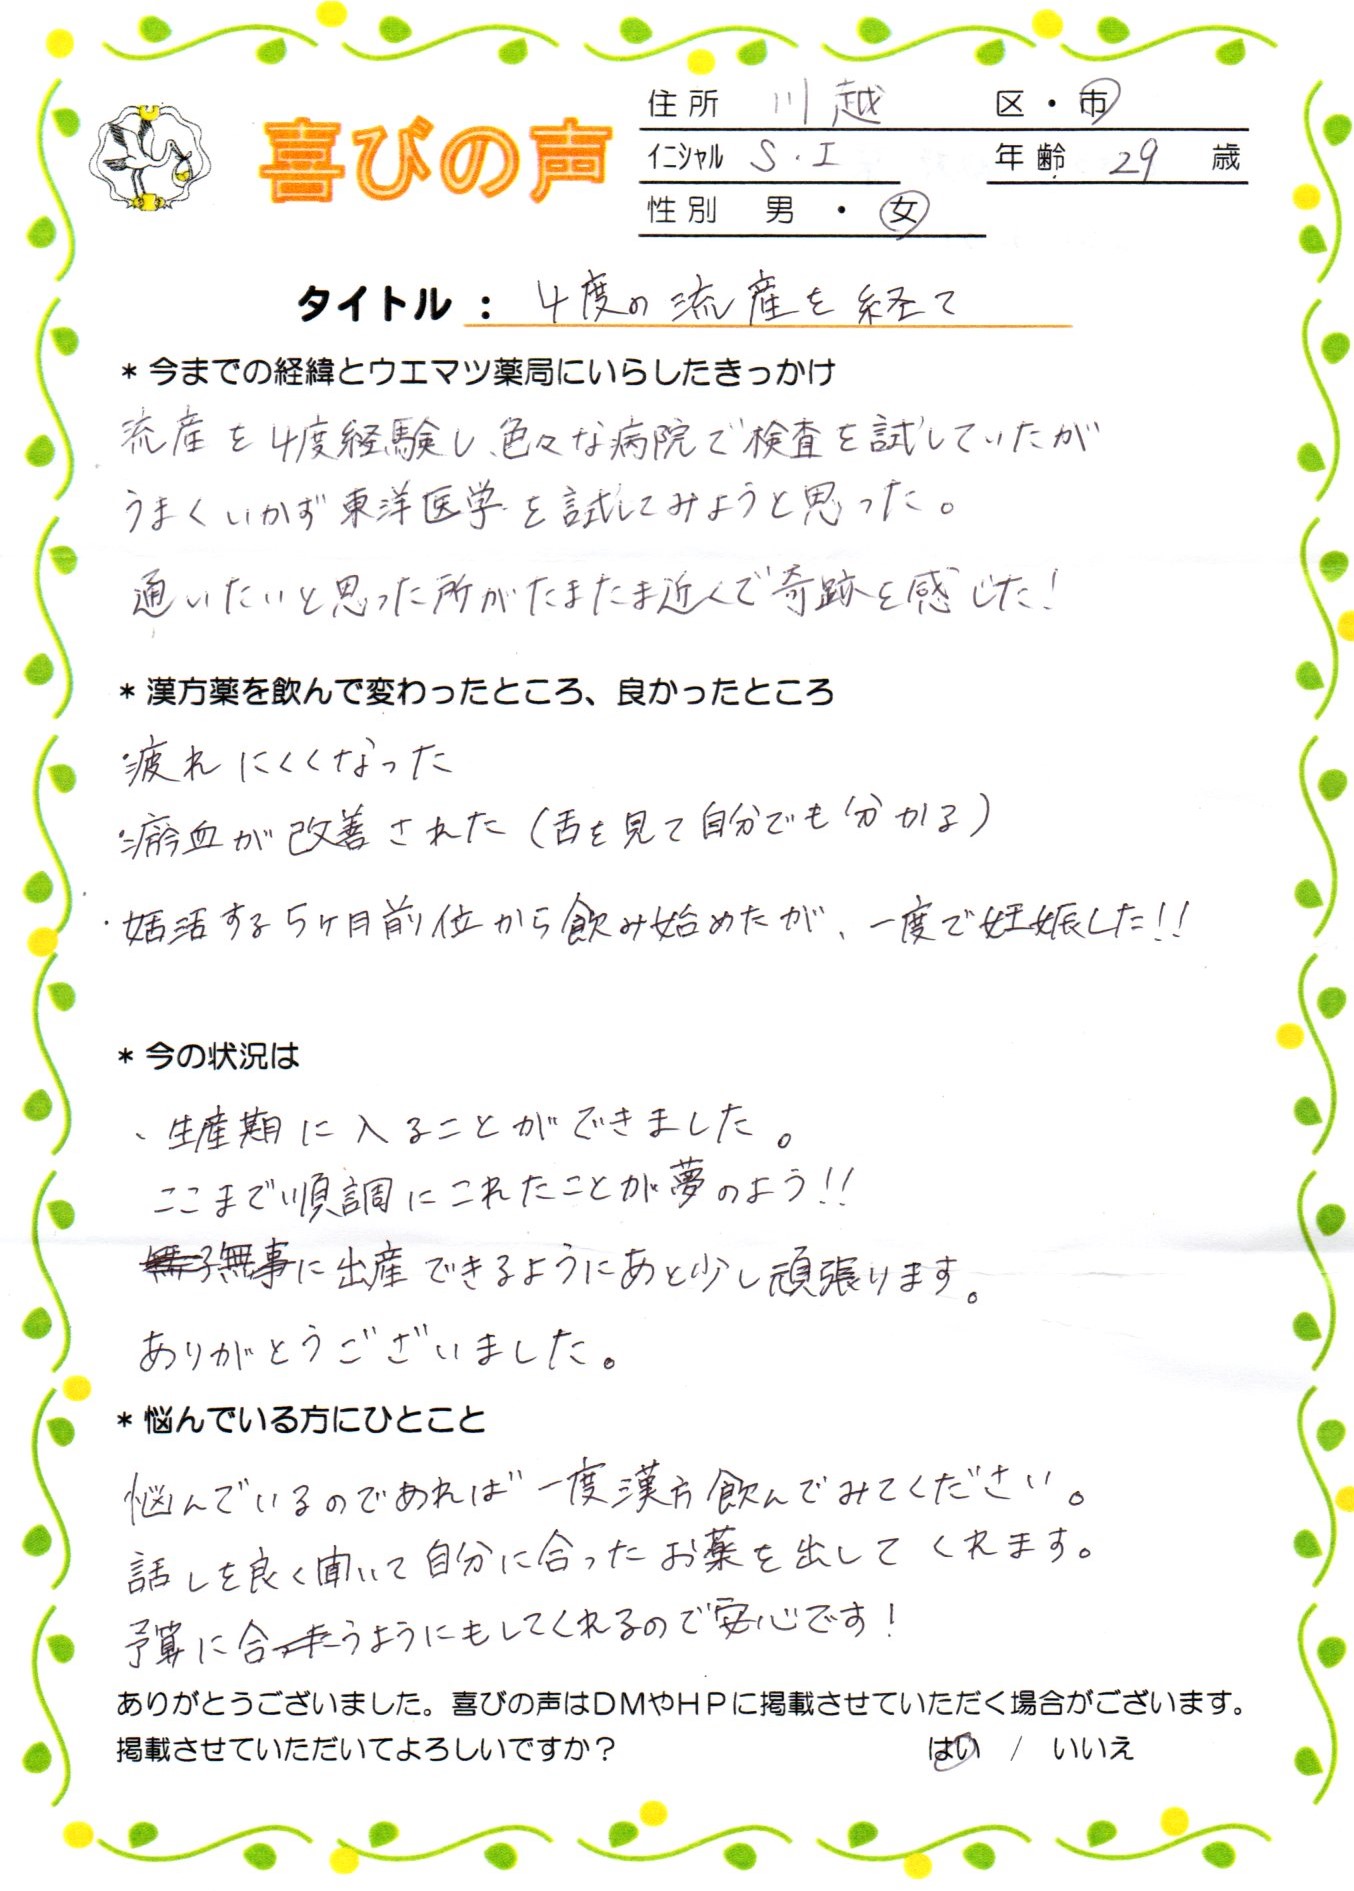 喜びの声
住所 川越 区・市
イニシャル S.I 年齢 29 歳
性別 男・女
タイトル： 4度の流産を経て
* 今までの経緯とウエマツ薬局にいらしたきっかけ
流産を4度経験し、色々な病院で検査を試していたが
うまくいかず東洋医学を試してみようと思った。
通いたいと思った所がたまたま近くで奇跡を感じた！
* 漢方薬を飲んで変わったところ、良かったところ
・疲れにくくなった
・瘀血が改善された（舌を見て自分でも分かる）
・妊活する5ヶ月前位から飲み始めたが、一度で妊娠した!!
* 今の状況は
、生産期に入ることができました。
ここまで順調にこれたことが夢のよう!!
無事に出産できるようにあと少し頑張ります。
ありがとうございました。
* 悩んでいる方にひとこと
悩んでいるのであれば一度漢方飲んでみてください。
話しを良く聞いて自分に合ったお薬を出してくれます。
予算に合うようにもしてくれるので安心です！
ありがとうございました。喜びの声はDMやHPに掲載させていただく場合がございます。
掲載させていただいてよろしいですか？ はい / いいえ